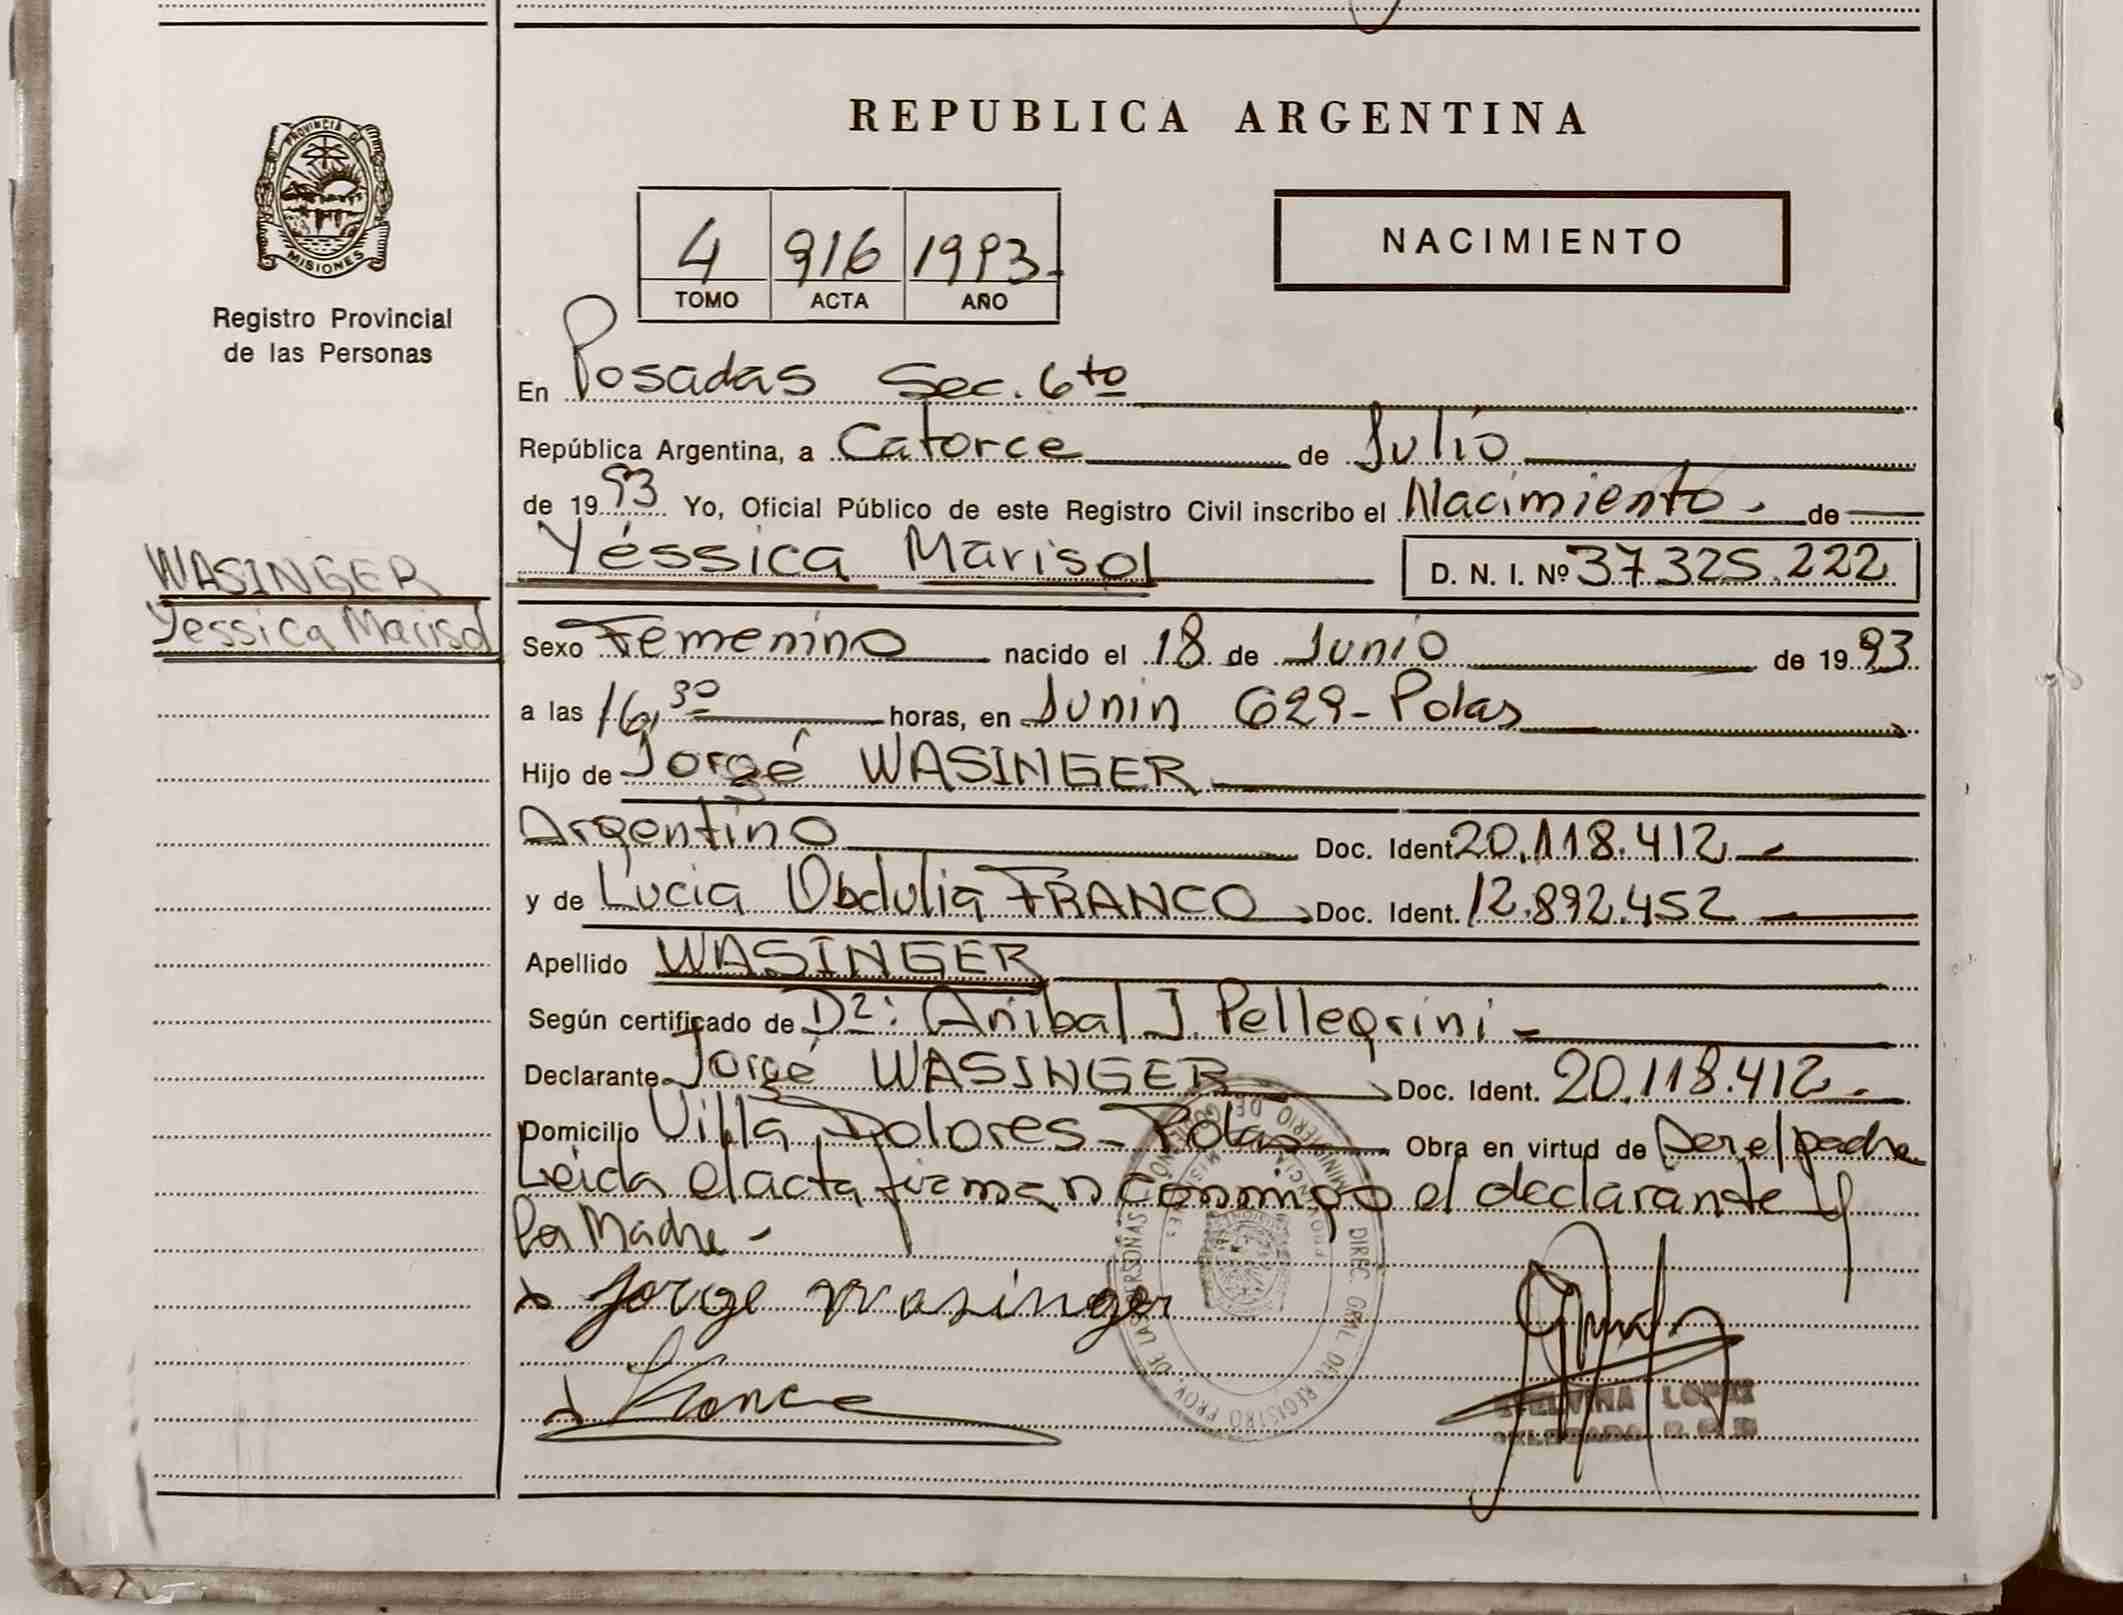 REPUBLICA ARGENTINA
PROVINCIA DE
MISIONES
Registro Provincial
de las Personas
4 916 1993.
TOMO ACTA AÑO
NACIMIENTO
En Posadas Sec. 6to
República Argentina, a Catorce de Julio
de 1993 Yo, Oficial Público de este Registro Civil inscribo el Nacimiento. de
Yéssica Marisol D. N. I. Nº 37325.222
WASINGER
Yessica Marisol
Sexo Femenino nacido el 18 de Junio de 1993
a las 16,30 horas, en Junin 629- Pdas
Hijo de Jorgé WASINGER
Argentino Doc. Ident 20.118.412
y de Lucia Obdulia FRANCO Doc. Ident. 12.892.452
Apellido WASINGER
Según certificado de Dr: Anibal J. Pellegrini -
Declarante Jorgé WASINGER Doc. Ident. 20.118.412.
Domicilio Villa Dolores- Pdas Obra en virtud de Ser el padre
Leida el acta firman conmigo el declarante y
la Madre -
Jorge Wasinger
Franco
LOPEZ
DIREC. GRAL. DEL REGISTRO PROV. DE LAS PERSONAS
MINISTERIO DE GOBIERNO
PROVINCIA MISIONES